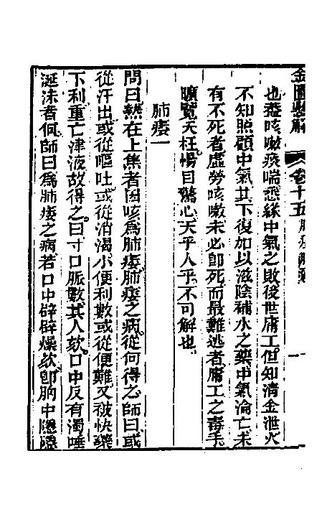 金匱懸解 卷十五
也蓋咳嗽痰喘悉緣中氣之敗後世庸工但知清金泄火
不知照顧中氣其下復加以滋陰補水之藥中氣淪亡未
有不死者虛勞咳嗽未必卽死而最難逃者庸工之毒手
曠覽夭枉惕目驚心天乎人乎不可解也
肺痿一
問曰熱在上焦者因咳爲肺痿肺痿之病從何得之師曰或
從汗出或從嘔吐或從消渴小便利數或從便難又被快藥
下利重亡津液故得之曰寸口脈數其人欬口中反有濁唾
涎沫者何師曰爲肺痿之病若口中辟辟燥欬卽胸中隱隱